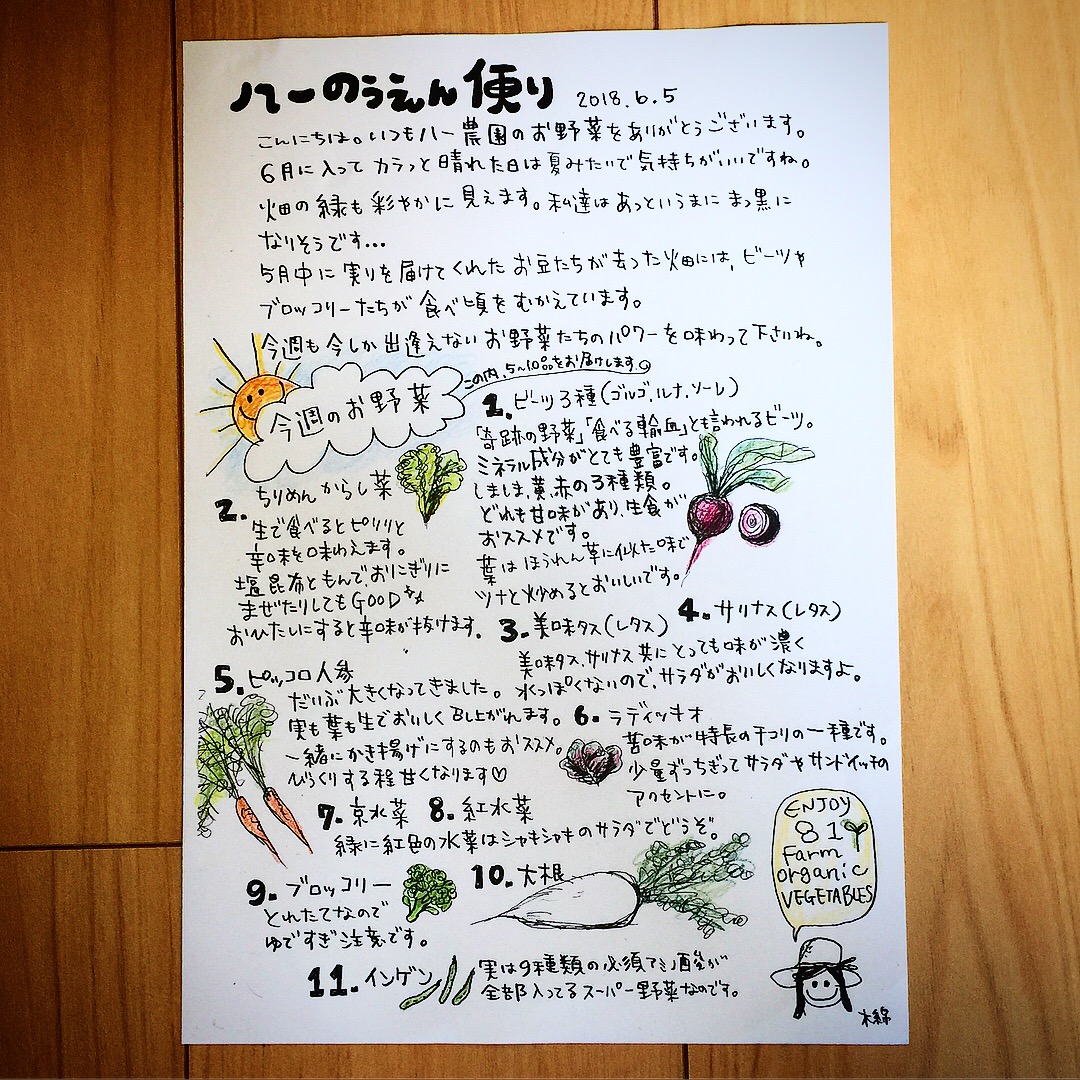 ハーのうえん便り 2018.6.5
こんにちは。いつもハー農園のお野菜をありがとうございます。
6月に入ってカラっと晴れた日は夏みたいで気持ちがいいですね。
畑の緑も彩やかに見えます。私達はあっというまにまっ黒に
なりそうです...
5月中に実りを届けてくれたお豆たちが去った畑には、ビーツや
ブロッコリーたちが食べ頃をむかえています。
今週も今しか出逢えないお野菜たちのパワーを味わって下さいね。
この内、5~10品をお届けします。
今週のお野菜
1. ビーツ3種(ゴルゴ、ルナ、ソーレ)
「奇跡の野菜」「食べる輸血」とも言われるビーツ。
ミネラル成分がとても豊富です。
しましま、黄、赤の3種類。
どれも甘味があり、生食が
おススメです。
葉はほうれん草に似た味で
ツナと炒めるとおいしいです。
2. ちりめんからし菜
生で食べるとピリリと
辛味を味わえます。
塩昆布ともんで、おにぎりに
まぜたりしてもGOOD
おひたしにすると辛味が抜けます。
3. 美味タス(レタス)
4. サリナス(レタス)
美味タス、サリナス共にとっても味が濃く
水っぽくないので、サラダがおいしくなりますよ。
5. ピッコロ人参
だいぶ大きくなってきました。
実も葉も生でおいしく召し上がれます。
一緒にかき揚げにするのもおススメ。
びっくりする程甘くなります♡
6. ラディッキオ
苦味が特長のチコリの一種です。
少量ずつちぎってサラダやサンドイッチの
アクセントに。
7. 京水菜 8. 紅水菜
緑に紅色の水菜はシャキシャキのサラダでどうぞ。
9. ブロッコリー
とれたてなので
ゆですぎ注意です。
10. 大根
11. インゲン
実は9種類の必須アミノ酸が
全部入ってるスーパー野菜なのです。
ENJOY
81
Farm
organic
VEGETABLES
木綿